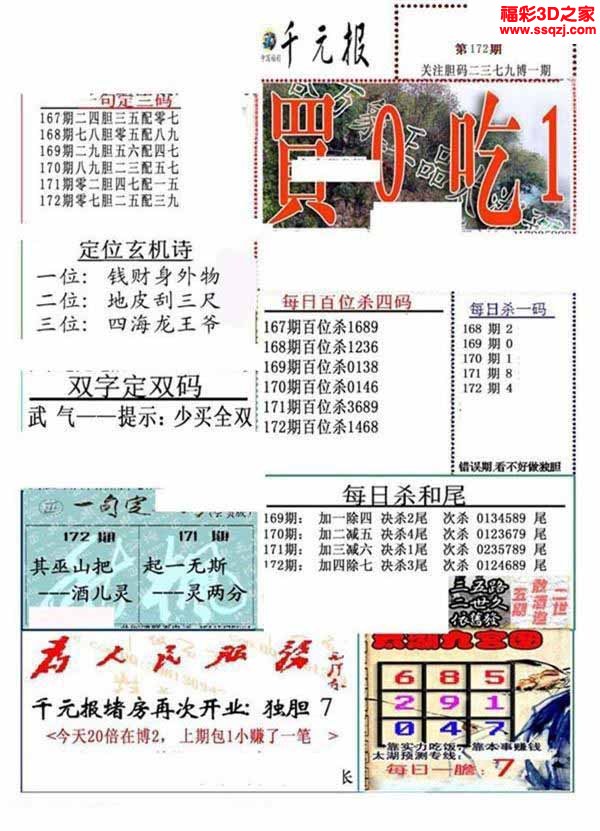 福彩3D之家
www.ssqzj.com
千元报
第172期
关注胆码二三七九博一期
一句定三码
167期二四胆三五配零七
168期七八胆零五配八九
169期二九胆五六配四七
170期八九胆二三配五七
171期零二胆四七配一五
172期零七胆二五配三九
買0吃1
定位玄机诗
一位: 钱财身外物
二位: 地皮刮三尺
三位: 四海龙王爷
每日百位杀四码
167期百位杀1689
168期百位杀1236
169期百位杀0138
170期百位杀0146
171期百位杀3689
172期百位杀1468
每日杀一码
168 期 2
169 期 0
170 期 1
171 期 8
172 期 4
错误期,看不好做独胆
双字定双码
武 气——提示: 少买全双
每日杀和尾
169期: 加一除四 决杀2尾 次杀 0134589 尾
170期: 加二减五 决杀4尾 次杀 0123679 尾
171期: 加三减六 决杀1尾 次杀 0235789 尾
172期: 加四除七 决杀3尾 次杀 0124689 尾
一句定
172 期
其巫山把
---酒儿灵
171 期
起一无斯
---灵两分
为人民服务
千元报堵房再次开业: 独胆 7
<今天20倍在博2, 上期包1小赚了一笔 >
长
太湖九宫图
6 8 5
2 9 1
0 4 7
靠实力吃饭 靠本事赚钱
太湖预测专线:
每日一胆: 7